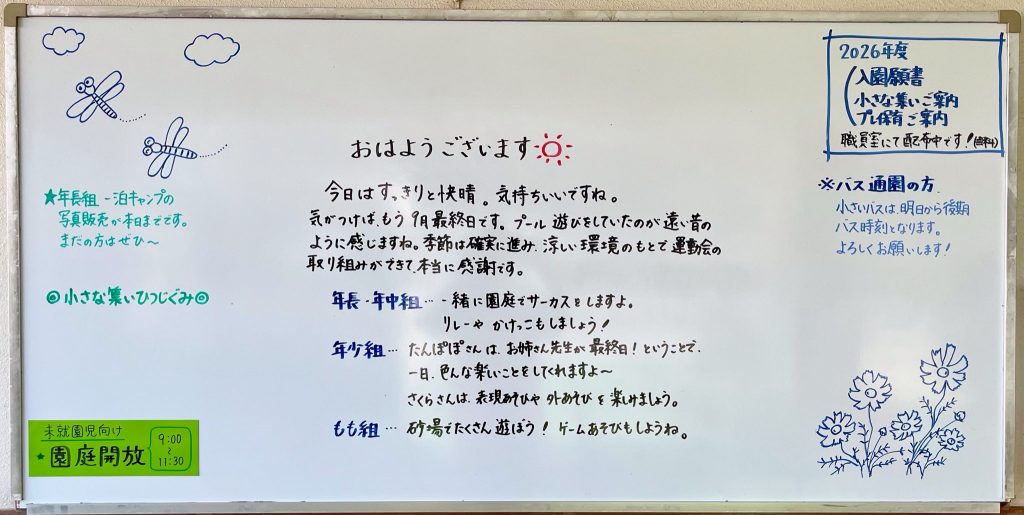 おはようございます
今日はすっきりと快晴。気持ちいいですね。
気がつけば、もう9月最終日です。プール遊びをしていたのが遠い昔の
ように感じますね。季節は確実に進み、涼しい環境のもとで運動会の
取り組みができて、本当に感謝です。
年長・年中組… 一緒に園庭でサーカスをしますよ。
リレーや かけっこもしましょう!
年少組… たんぽぽさんは、お姉さん先生が最終日!ということで、
一日、色んな楽しいことをしてくれますよ〜
さくらさんは、表現あそびや外あそびを楽しみましょう。
もも組… 砂場でたくさん遊ぼう! ゲームあそびもしようね。
★年長組 一泊キャンプの
写真販売が本日までです。
まだの方はぜひ〜
◎小さな集いひつじぐみ◎
未就園児向け
★園庭開放
9:00
〜
11:30
2026年度
入園願書
小さな集いご案内
プレ保育ご案内
職員室にて配布中です!(無料)
※バス通園の方
小さいバスは、明日から後期
バス時刻となります。
よろしくお願いします!